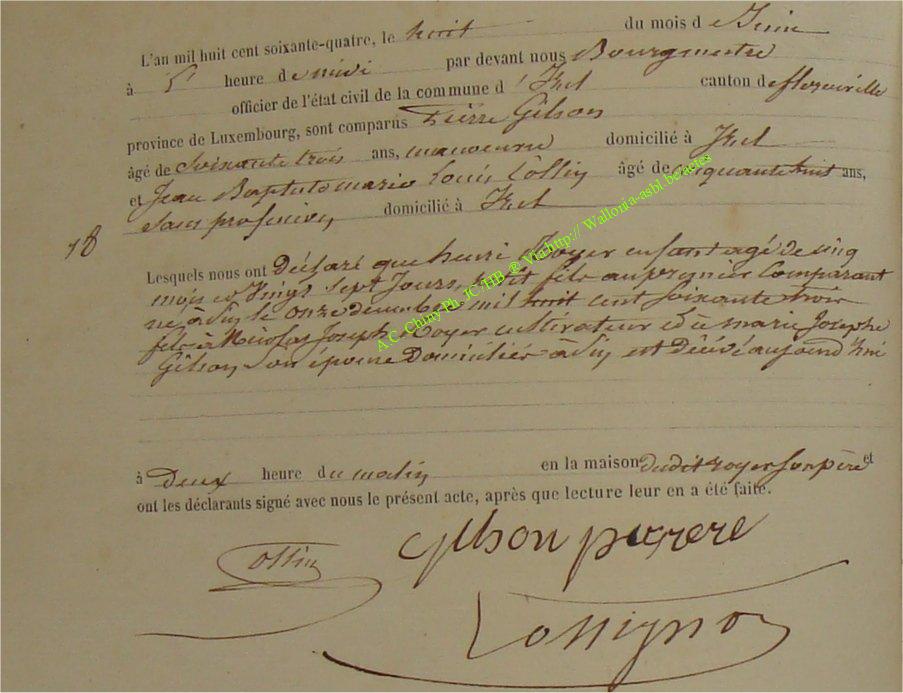 L'an mil huit cent soixante-quatre, le huit du mois d e Juin
à heure de midi par devant nous Bourgmestre
officier de l'état civil de la commune d' Izel canton de florenville
province de Luxembourg, sont comparus Pierre Gilson
âgé de Soixante trois ans, manoeuvre domicilié à Izel
et Jean Baptiste marie Louis Collin âgé de cinquante huit ans,
Sans profession domicilié à Izel
18
Lesquels nous ont Déclaré que henri Royer enfant agé de cinq
mois et Vingt Sept Jours, petit fils au premier Comparant
né à le onze decembre mil huit cent Soixante trois
fils à Nicolas Joseph Royer cultivateur et à marie Josephe
Gilson, Son épouse Domiciliés à est Décédé aujourd'hui
à Deux heure du matin en la maison dudit royer son père et
ont les déclarants signé avec nous le présent acte, après que lecture leur en a été faite.
Collin gilson pierre
Lossignon
A.C. Chiny Ph. JC HB @ Via http:// Wallonia-asbl beneles